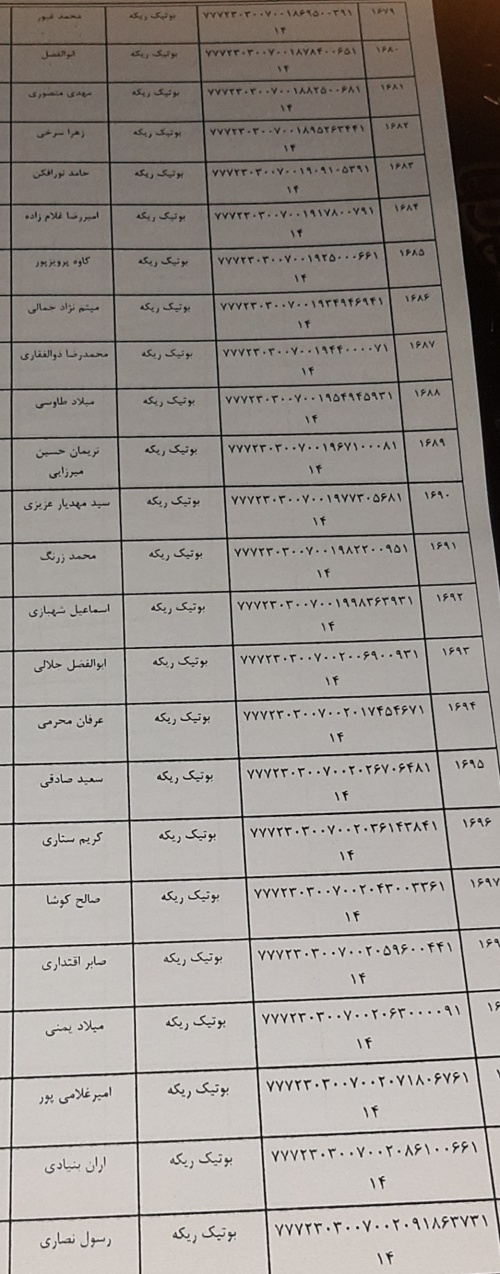 ۱۶۷۹ ۷۷۷۲۳۰۳۰۰۷۰۰۱۸۶۹۵۰۰۳۹۱ بوتیک ریکه محمد غیور
۱۴
۱۶۸۰ ۷۷۷۲۳۰۳۰۰۷۰۰۱۸۷۸۴۰۰۶۵۱ بوتیک ریکه ابوالفضل
۱۴
۱۶۸۱ ۷۷۷۲۳۰۳۰۰۷۰۰۱۸۸۲۵۰۰۶۸۱ بوتیک ریکه مهدی منصوری
۱۴
۱۶۸۲ ۷۷۷۲۳۰۳۰۰۷۰۰۱۸۹۵۲۶۳۴۴۱ بوتیک ریکه زهرا سرخی
۱۴
۱۶۸۳ ۷۷۷۲۳۰۳۰۰۷۰۰۱۹۰۹۱۰۵۳۹۱ بوتیک ریکه حامد نورافکن
۱۴
۱۶۸۴ ۷۷۷۲۳۰۳۰۰۷۰۰۱۹۱۷۸۰۰۷۹۱ بوتیک ریکه امیررضا غلام زاده
۱۴
۱۶۸۵ ۷۷۷۲۳۰۳۰۰۷۰۰۱۹۲۵۰۰۰۶۶۱ بوتیک ریکه کاوه پرویزپور
۱۴
۱۶۸۶ ۷۷۷۲۳۰۳۰۰۷۰۰۱۹۳۴۹۴۶۹۴۱ بوتیک ریکه میثم نژاد جمالی
۱۴
۱۶۸۷ ۷۷۷۲۳۰۳۰۰۷۰۰۱۹۴۴۰۰۰۰۷۱ بوتیک ریکه محمدرضا ذوالفقاری
۱۴
۱۶۸۸ ۷۷۷۲۳۰۳۰۰۷۰۰۱۹۵۴۹۴۵۹۳۱ بوتیک ریکه میلاد طاوسی
۱۴
۱۶۸۹ ۷۷۷۲۳۰۳۰۰۷۰۰۱۹۶۷۱۰۰۰۸۱ بوتیک ریکه نریمان حسین
۱۴ میرزایی
۱۶۹۰ ۷۷۷۲۳۰۳۰۰۷۰۰۱۹۷۷۳۰۵۶۸۱ بوتیک ریکه سید مهدیار عزیزی
۱۴
۱۶۹۱ ۷۷۷۲۳۰۳۰۰۷۰۰۱۹۸۲۲۰۰۹۵۱ بوتیک ریکه محمد زرنگ
۱۴
۱۶۹۲ ۷۷۷۲۳۰۳۰۰۷۰۰۱۹۹۸۳۶۳۹۳۱ بوتیک ریکه اسماعیل شهبازی
۱۴
۱۶۹۳ ۷۷۷۲۳۰۳۰۰۷۰۰۲۰۰۶۹۰۰۹۳۱ بوتیک ریکه ابوالفضل حلالی
۱۴
۱۶۹۴ ۷۷۷۲۳۰۳۰۰۷۰۰۲۰۱۷۴۵۴۶۷۱ بوتیک ریکه عرفان محرمی
۱۴
۱۶۹۵ ۷۷۷۲۳۰۳۰۰۷۰۰۲۰۲۶۷۰۶۴۸۱ بوتیک ریکه سعید صادقی
۱۴
۱۶۹۶ ۷۷۷۲۳۰۳۰۰۷۰۰۲۰۳۶۱۴۳۸۴۱ بوتیک ریکه کریم ستاری
۱۴
۱۶۹۷ ۷۷۷۲۳۰۳۰۰۷۰۰۲۰۴۳۰۰۳۳۶۱ بوتیک ریکه صالح کوشا
۱۴
۷۷۷۲۳۰۳۰۰۷۰۰۲۰۵۹۶۰۰۴۴۱ بوتیک ریکه صابر اقتداری
۱۴
۷۷۷۲۳۰۳۰۰۷۰۰۲۰۶۳۰۰۰۰۹۱ بوتیک ریکه میلاد یمنی
۱۴
۷۷۷۲۳۰۳۰۰۷۰۰۲۰۷۱۸۰۶۷۶۱ بوتیک ریکه امیرغلامی پور
۱۴
۷۷۷۲۳۰۳۰۰۷۰۰۲۰۸۶۱۰۰۶۶۱ بوتیک ریکه اران بنیادی
۱۴
۷۷۷۲۳۰۳۰۰۷۰۰۲۰۹۱۸۶۳۷۳۱ بوتیک ریکه رسول نصاری
۱۴